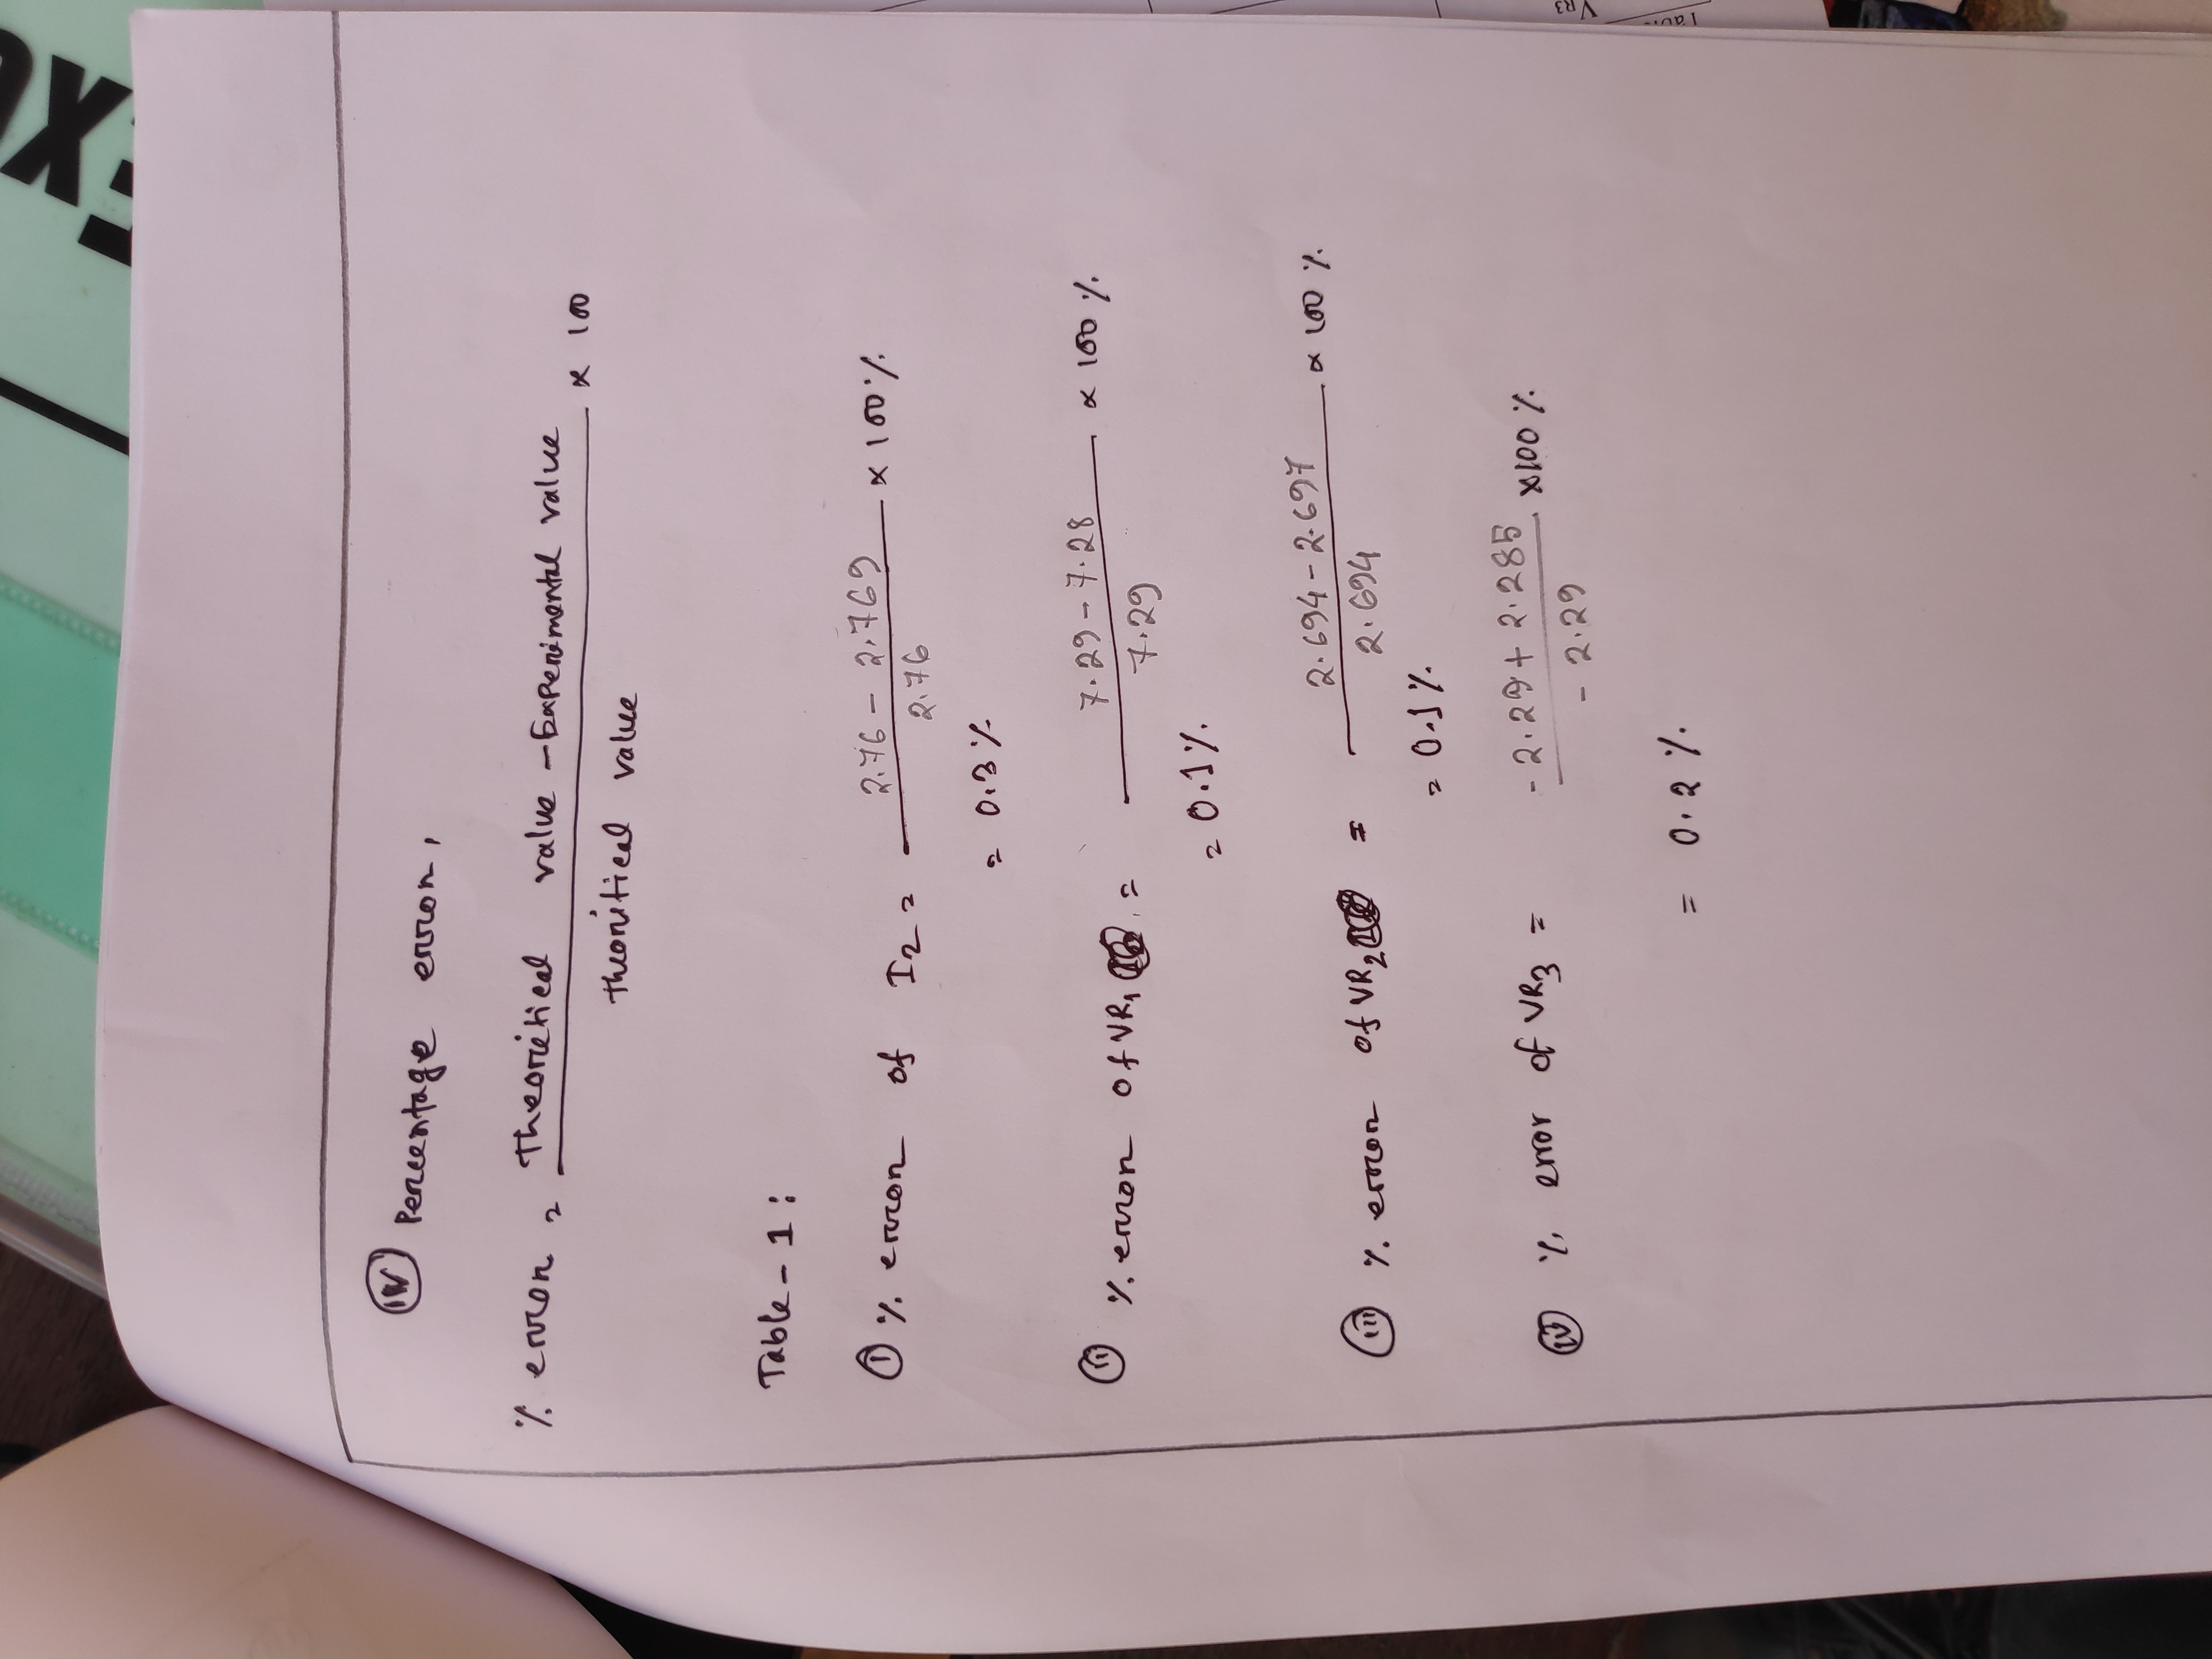 EX
IV Percentage error,
% error = Theoritical value - Experimental value / theoritical value × 100
Table - 1 :
i % error of I2 = 2.76 - 2.769 / 2.76 × 100 %
= 0.3 %
ii % error of VR1 = 7.29 - 7.28 / 7.29 × 100 %
= 0.1 %
iii % error of VR2 = 2.694 - 2.697 / 2.694 × 100 %
= 0.1 %
iv % error of VR3 = - 2.29 + 2.285 / - 2.29 × 100 %
= 0.2 %
VR3